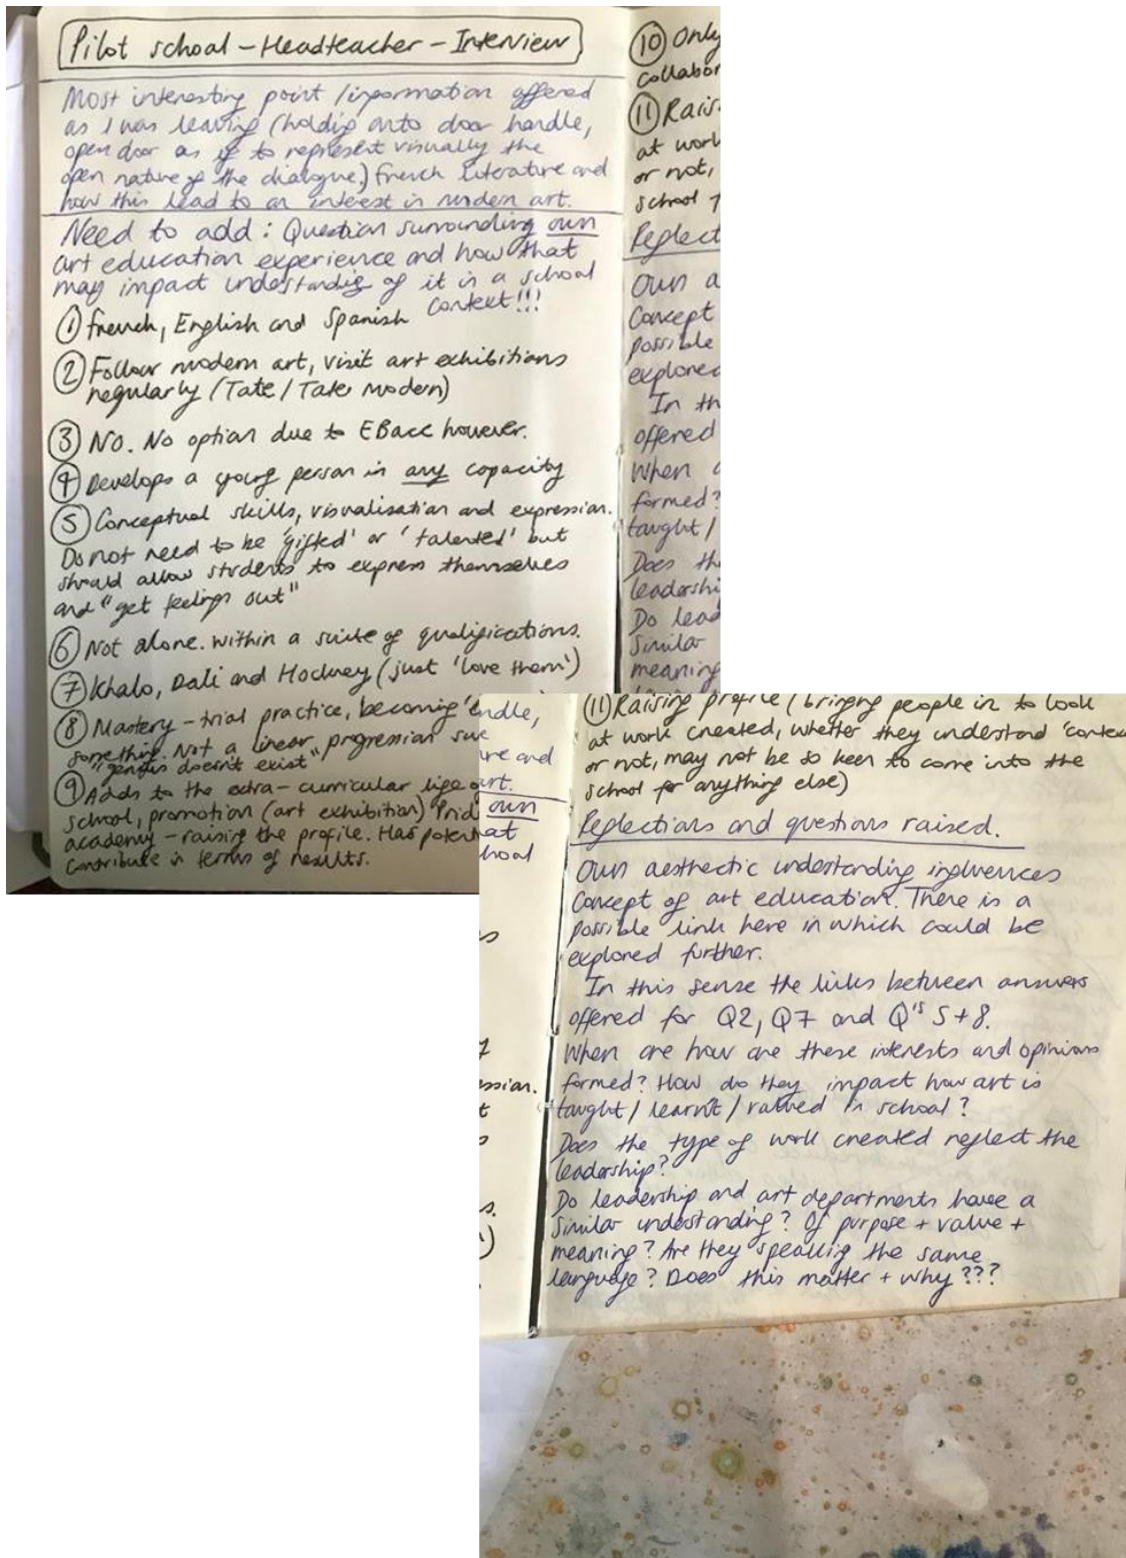 Pilot school - Headteacher - Interview
Most interesting point / information offered
as I was leaving (holding onto door handle,
open door as if to represent visually the
open nature of the dialogue.) French literature and
how this lead to an interest in modern art.
Need to add: Question surrounding own
art education experience and how that
may impact understanding of it in a school
context!!!
① French, English and Spanish
② Follow modern art, visit art exhibitions
regularly (Tate / Tate modern)
③ No. No option due to EBacc however.
④ Develops a young person in any capacity
⑤ Conceptual skills, visualisation and expression.
Do not need to be 'gifted' or 'talented' but
should allow students to express themselves
and "get feelings out"
⑥ Not alone. within a suite of qualifications.
⑦ Khalo, Dali and Hockney (just 'love them')
⑧ Mastery - trial practice, becoming
something. Not a linear progression
"genius doesn't exist"
⑨ Adds to the extra-curricular life
school, promotion (art exhibition) Prid
academy - raising the profile. Has potent
contribute in terms of results.
⑩ Only
collabor
⑪ Rais
at work
or not,
school f
Reflect
Own a
Concept
possible
explored
In th
offered
When a
formed?
taught /
Does the
leadershi
Do lead
similar
meaning
endle,
ure and
art.
own
hat
hool
ession.
t
⑪ Raising profile (bringing people in to look
at work created, whether they understand 'contex
or not, may not be so keen to come into the
school for anything else)
Reflections and questions raised.
Own aesthectic understanding influences
Concept of art education. There is a
possible link here in which could be
explored further.
In this sense the links between answers
offered for Q2, Q7 and Q's 5+8.
When are how are these interests and opinions
formed? How do they impact how art is
taught / learnt / valued in school?
Does the type of work created reflect the
leadership?
Do leadership and art departments have a
similar understanding? Of purpose + value +
meaning? Are they speaking the same
language? Does this matter + why ???